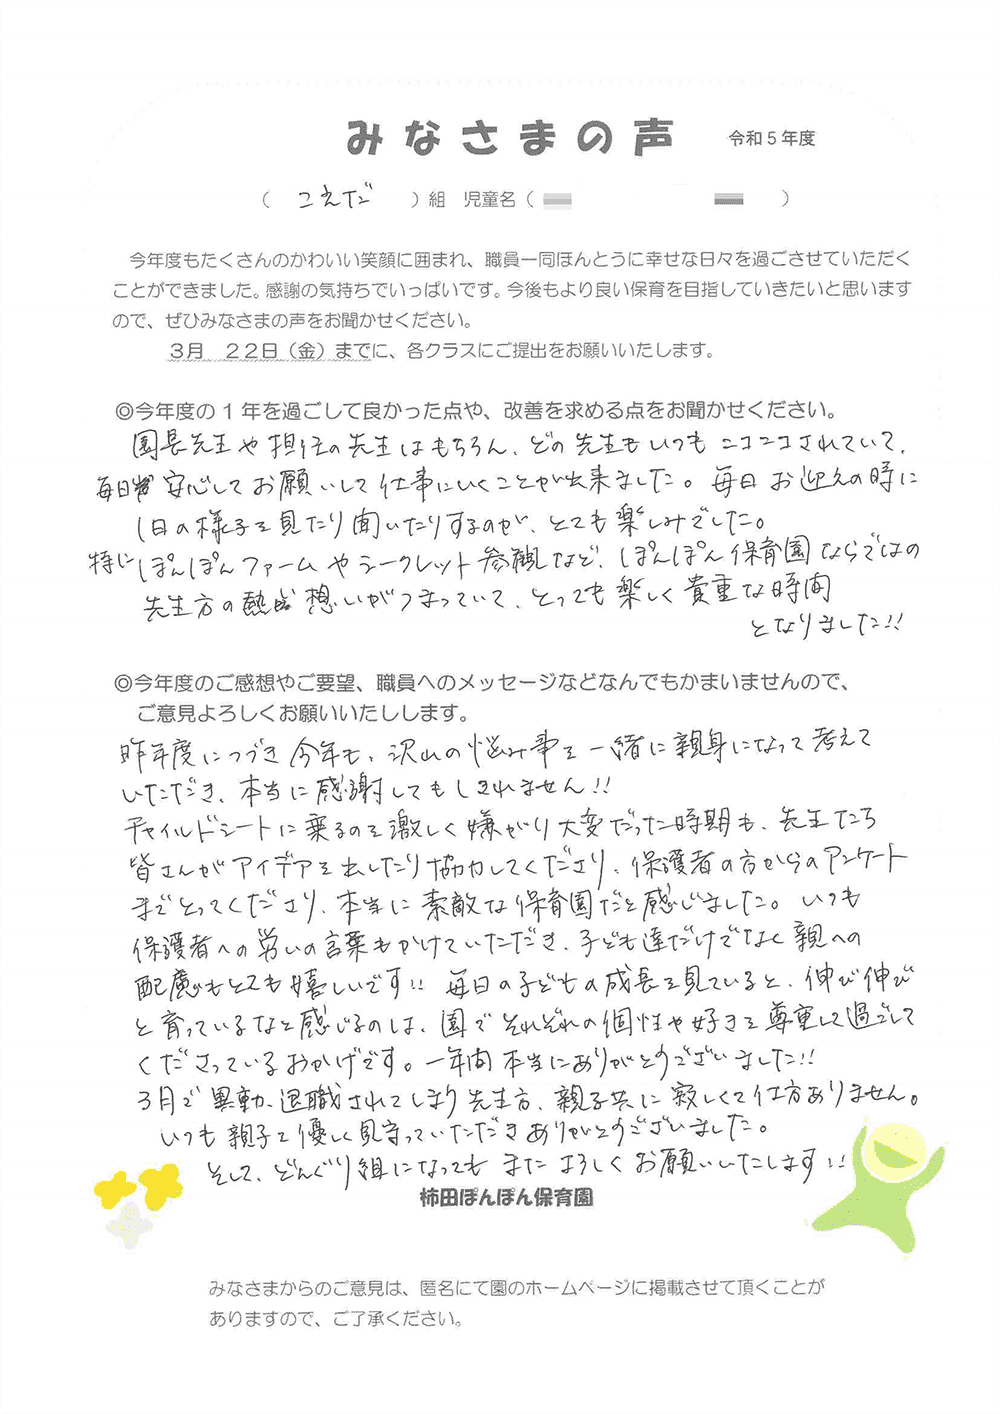 みなさまの声　令和５年度
（　こえだ　）組　児童名（　　　）
今年度もたくさんのかわいい笑顔に囲まれ、職員一同ほんとうに幸せな日々を過ごさせていただく
ことができました。感謝の気持ちでいっぱいです。今後もより良い保育を目指していきたいと思います
ので、ぜひみなさまの声をお聞かせください。
３月　２２日（金）までに、各クラスにご提出をお願いいたします。
◎今年度の１年を過ごして良かった点や、改善を求める点をお聞かせください。
園長先生や担任の先生はもちろん、どの先生もいつもニコニコされていて、
毎日安心してお願いして仕事にいくことが出来ました。毎日お迎えの時に
1日の様子を見たり聞いたりするのが、とても楽しみでした。
特にぽんぽんファームやシークレット参観など、ぽんぽん保育園ならではの
先生方の熱い想いがつまっていて、とっても楽しく貴重な時間
となりました!!
◎今年度のご感想やご要望、職員へのメッセージなどなんでもかまいませんので、
ご意見よろしくお願いいたしします。
昨年度につづき今年も、沢山の悩み事を一緒に親身になって考えて
いただき、本当に感謝してもしきれません!!
チャイルドシートに乗るのを激しく嫌がり大変だった時期も、先生たち
皆さんがアイデアを出したり協力してくださり、保護者の方からのアンケート
までとってくださり、本当に素敵な保育園だと感じました。いつも
保護者への労いの言葉もかけていただき、子ども達だけでなく親への
配慮もとても嬉しいです!! 毎日の子どもの成長を見ていると、伸び伸び
と育っているなと感じるのは、園でそれぞれの個性や好きを尊重して過ごして
くださっているおかげです。一年間本当にありがとうございました!!
3月で異動、退職されてしまう先生方、親子共に寂しくて仕方ありません。
いつも親子を優しく見守っていただきありがとうございました。
そして、どんぐり組になってもまたよろしくお願いいたします!!
柿田ぽんぽん保育園
みなさまからのご意見は、匿名にて園のホームページに掲載させて頂くことが
ありますので、ご了承ください。